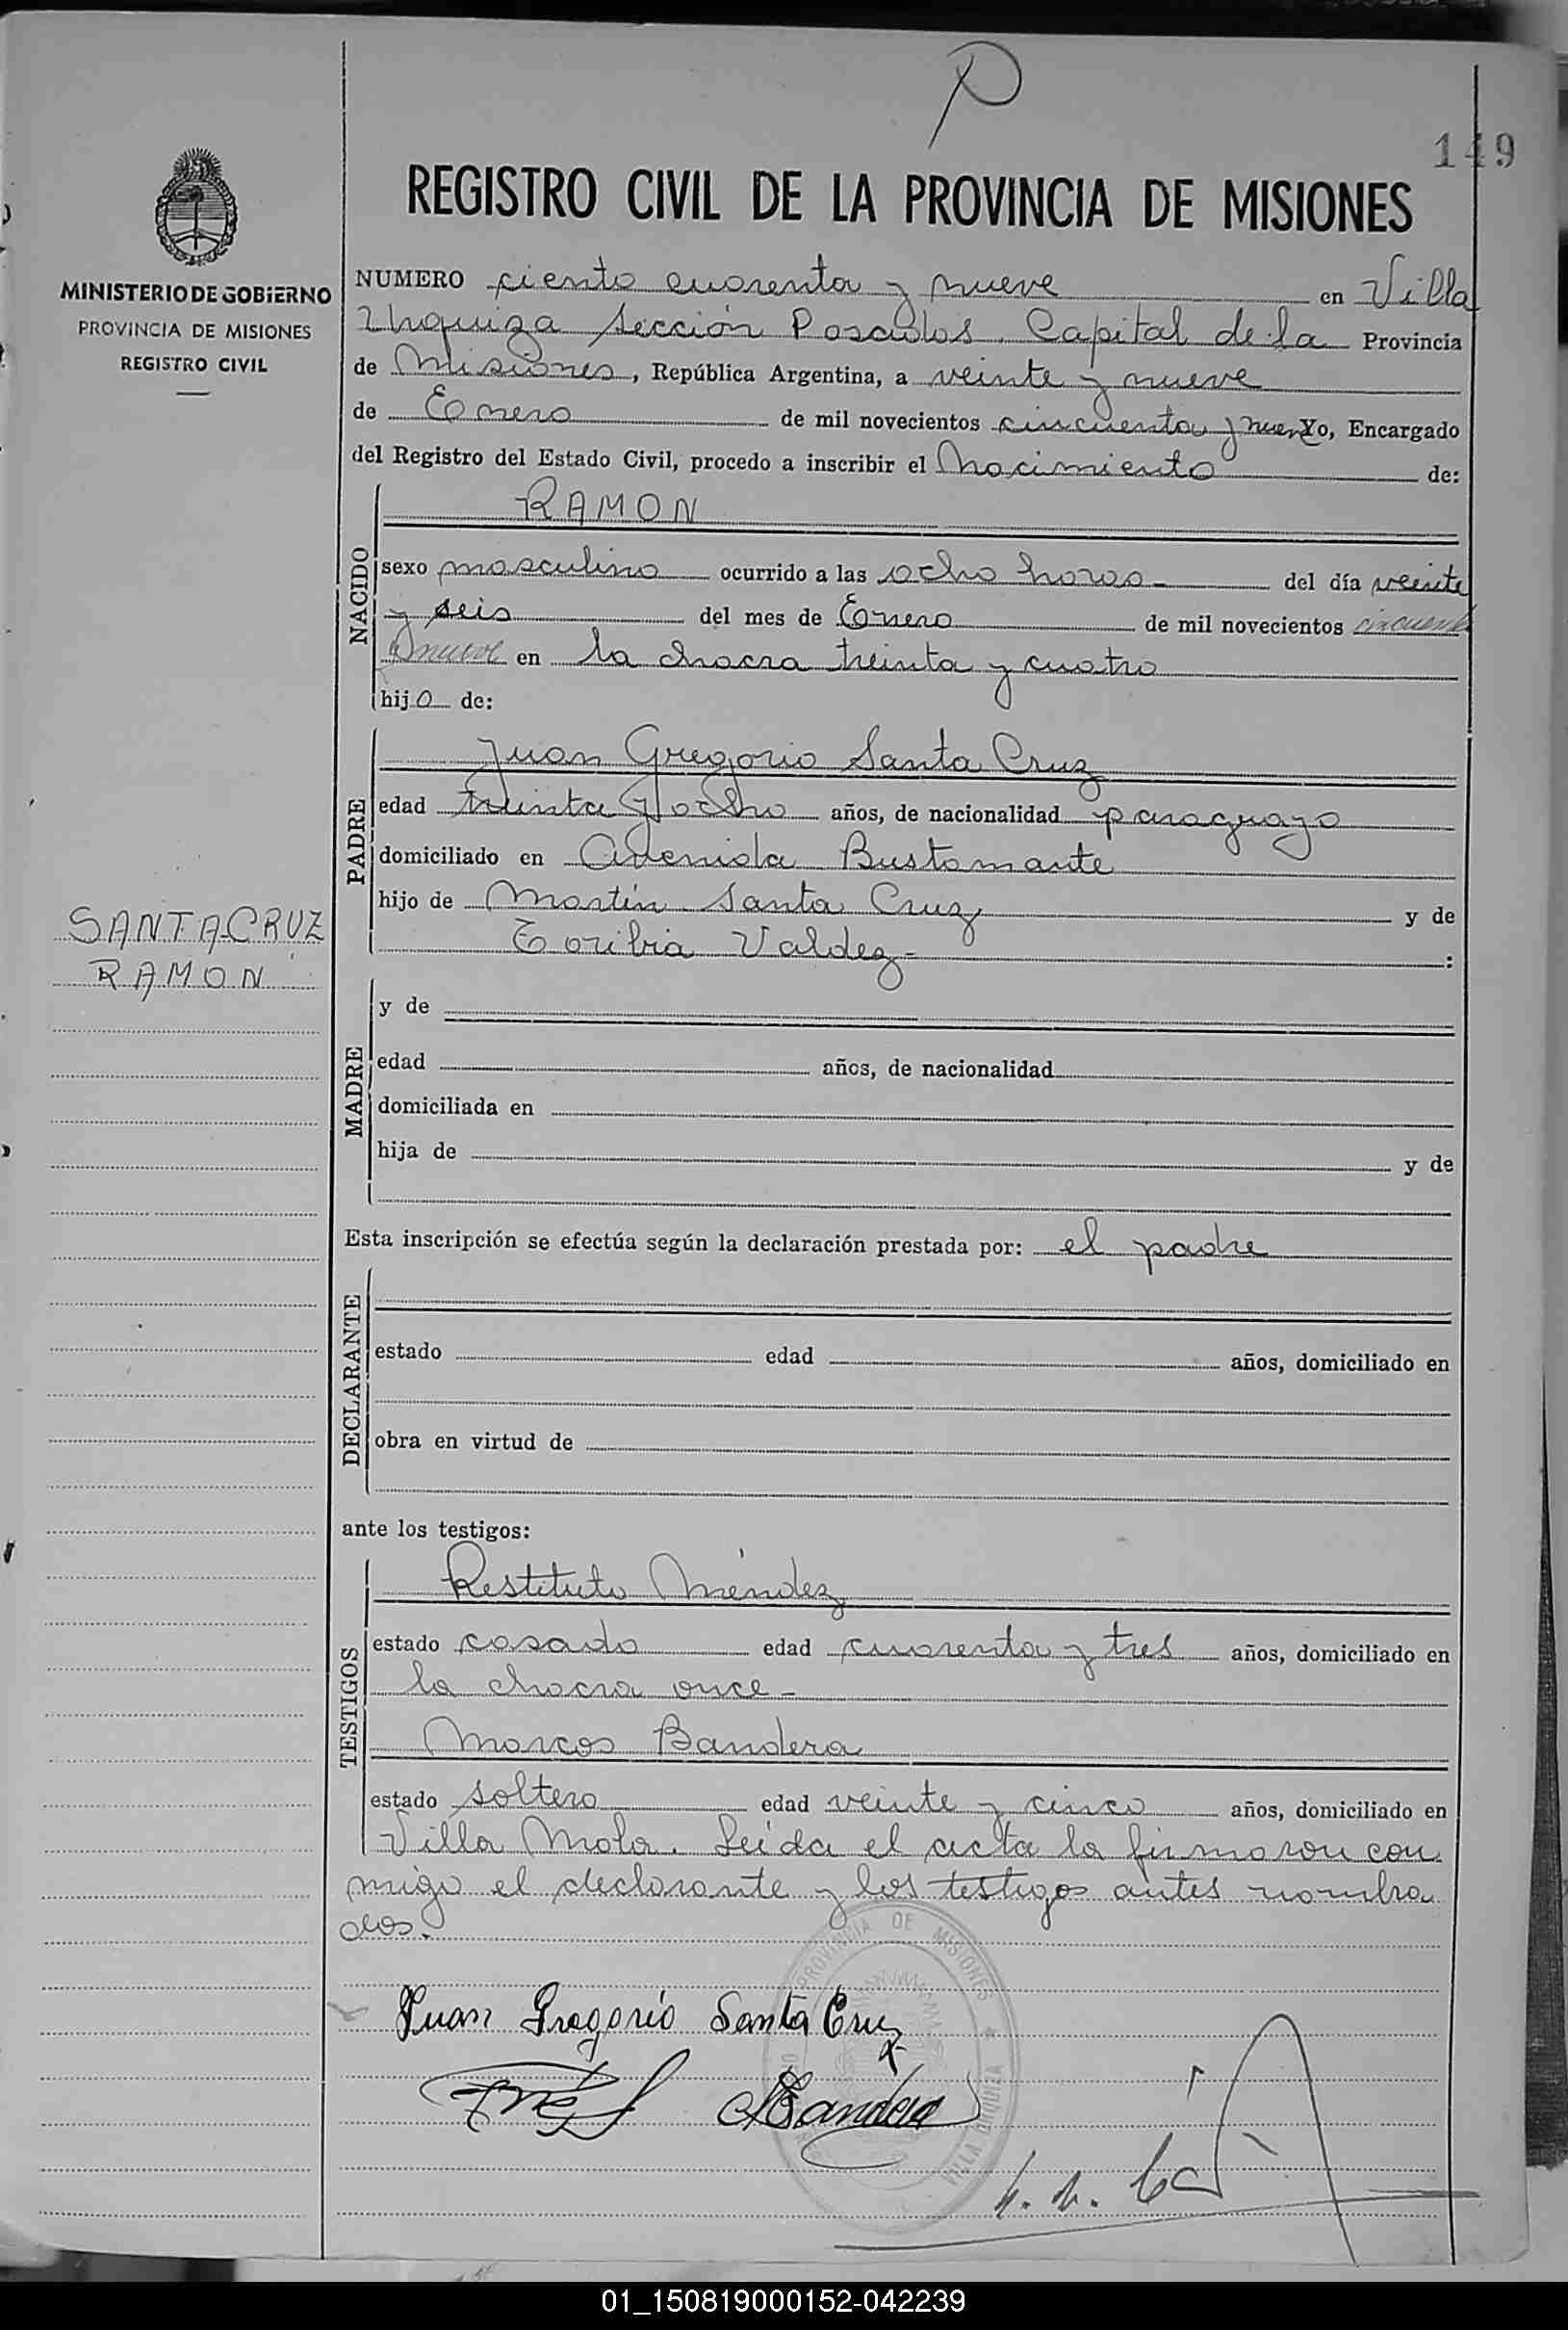 P
149
REGISTRO CIVIL DE LA PROVINCIA DE MISIONES
MINISTERIO DE GOBIERNO
PROVINCIA DE MISIONES
REGISTRO CIVIL
NUMERO ciento cuarenta y nueve en Villa
Urquiza Sección Posadas. Capital de la Provincia
de Misiones, República Argentina, a veinte y nueve
de Enero de mil novecientos cincuenta y nueve Yo, Encargado
del Registro del Estado Civil, procedo a inscribir el Nacimiento de:
NACIDO
RAMON
sexo masculino ocurrido a las ocho horas - del día veinte
y seis del mes de Enero de mil novecientos cincuenta
y nueve en la chacra treinta y cuatro
hijo de:
PADRE
Juan Gregorio Santa Cruz
edad treinta y ocho años, de nacionalidad paraguayo
domiciliado en Avenida Bustamante
hijo de Martín Santa Cruz y de
Toribia Valdez - :
SANTA CRUZ
RAMON
MADRE
y de
edad años, de nacionalidad
domiciliada en
hija de y de
Esta inscripción se efectúa según la declaración prestada por: el padre
DECLARANTE
estado edad años, domiciliado en
obra en virtud de
ante los testigos:
TESTIGOS
Restituto Méndez
estado casado edad cuarenta y tres años, domiciliado en
la chacra once -
Marcos Bandera
estado soltero edad veinte y cinco años, domiciliado en
Villa Mola. Leída el acta la firmaron con
migo el declarante y los testigos antes nombra
dos.
PROVINCIA DE MISIONES
VILLA URQUIZA
Juan Gregorio Santa Cruz
MBandera
01_150819000152-042239